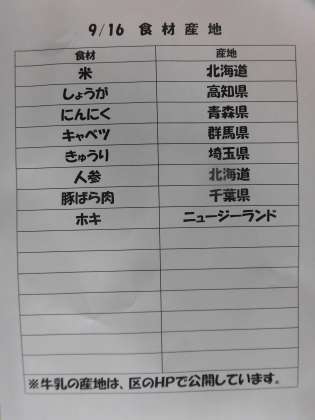 9/16 食材産地
食材 産地
米 北海道
しょうが 高知県
にんにく 青森県
キャベツ 群馬県
きゅうり 埼玉県
人参 北海道
豚ばら肉 千葉県
ホキ ニュージーランド
※牛乳の産地は、区のHPで公開しています。